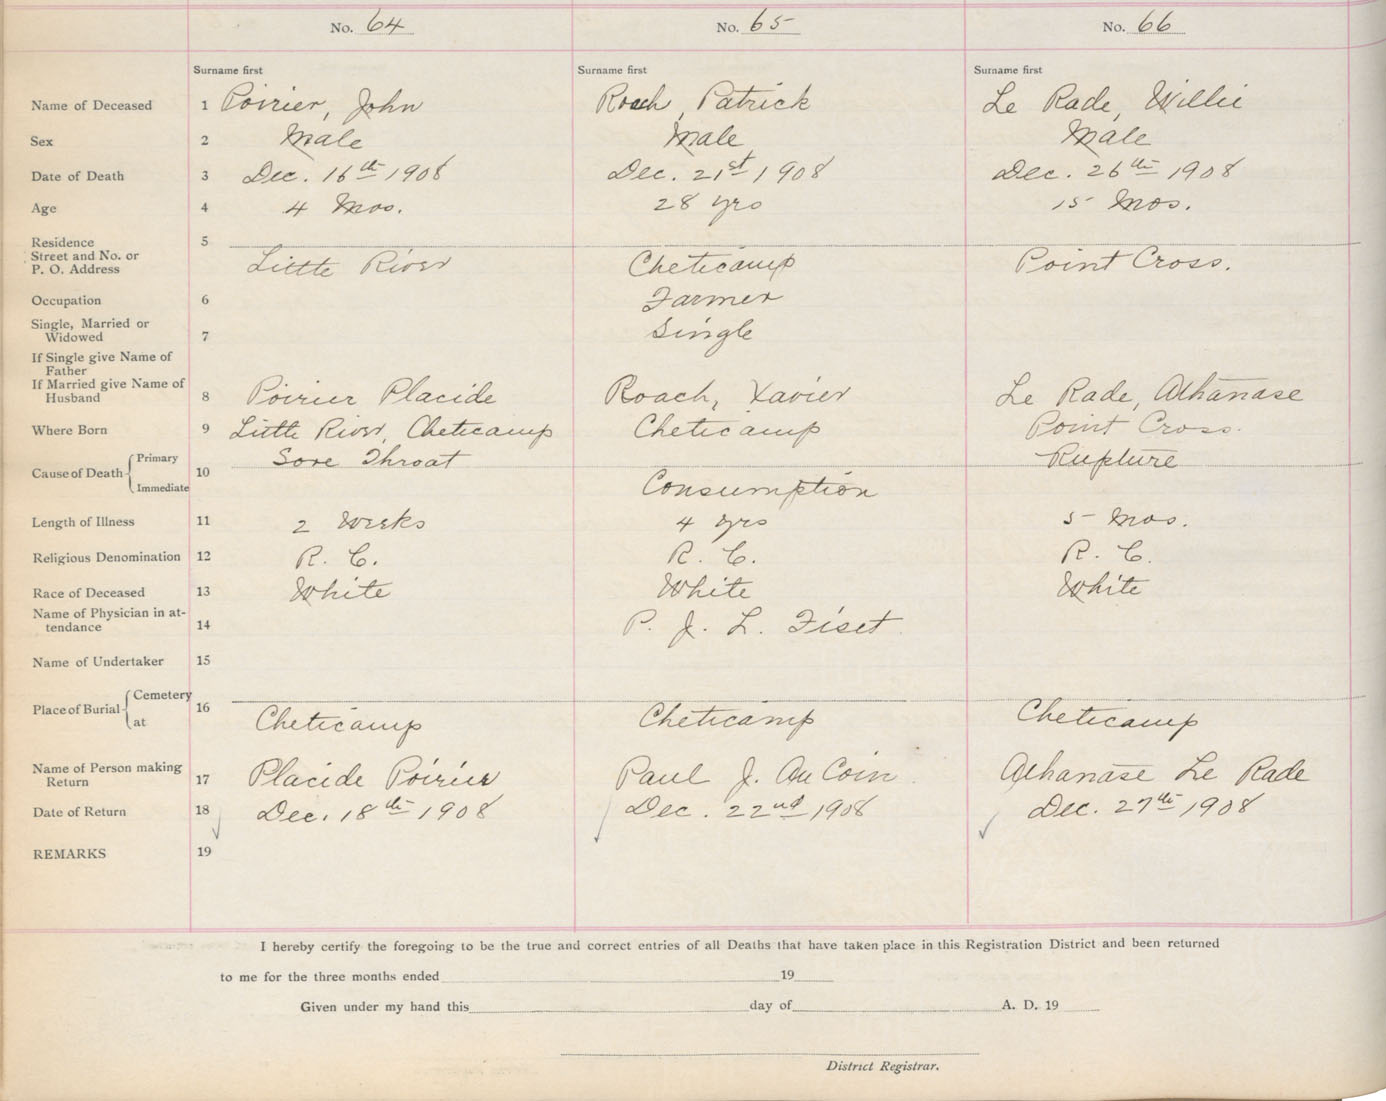 No. 64 No. 65 No. 66
Surname first Surname first Surname first
Name of Deceased 1 Poirier, John Roach, Patrick Le Rade, Willie
Sex 2 Male Male Male
Date of Death 3 Dec. 16th 1908 Dec. 21st 1908 Dec. 26th 1908
Age 4 4 Mos. 28 yrs 15 Mos.
Residence 5
Street and No. or
P. O. Address Little River Cheticamp Point Cross.
Occupation 6 Farmer
Single, Married or
Widowed 7 Single
If Single give Name of
Father
If Married give Name of
Husband 8 Poirier Placide Roach, Xavier Le Rade, Athanase
Where Born 9 Little River, Cheticamp Cheticamp Point Cross.
Cause of Death Primary 10 Sore Throat Rupture
Immediate Consumption
Length of Illness 11 2 Weeks 4 yrs 5 Mos.
Religious Denomination 12 R. C. R. C. R. C.
Race of Deceased 13 White White White
Name of Physician in at-
tendance 14 P. J. L. Fiset
Name of Undertaker 15
Place of Burial Cemetery 16
at Cheticamp Cheticamp Cheticamp
Name of Person making
Return 17 Placide Poirier Paul J. Au Coin Athanase Le Rade
Date of Return 18 Dec. 18th 1908 Dec. 22nd 1908 Dec. 27th 1908
REMARKS 19
I hereby certify the foregoing to be the true and correct entries of all Deaths that have taken place in this Registration District and been returned
to me for the three months ended 19
Given under my hand this day of A. D. 19
District Registrar.